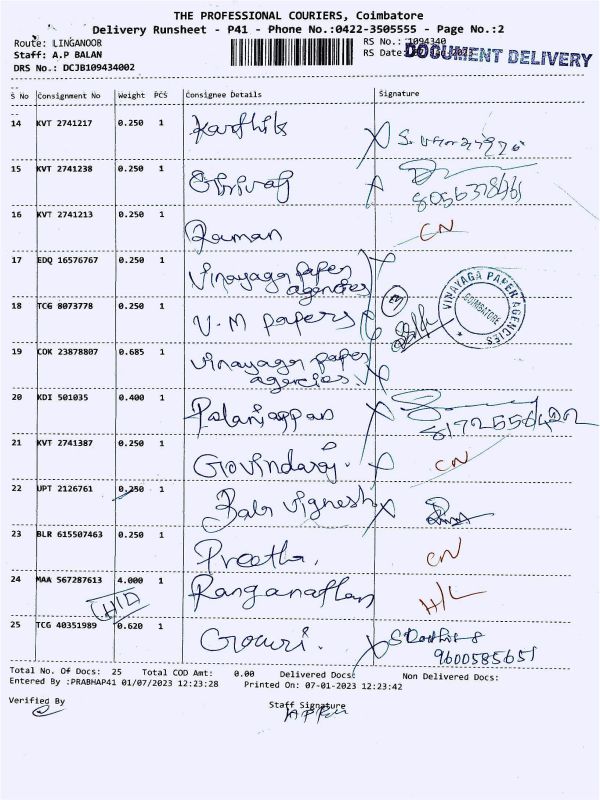 THE PROFESSIONAL COURIERS, Coimbatore
Delivery Runsheet - P41 - Phone No.:0422-3505555 - Page No.:2
Route: LINGANOOR
Staff: A.P BALAN
DRS No.: DCJB109434002
RS No.: 1094340
RS Date:
DOCUMENT DELIVERY
S No Consignment No Weight PCS Consignee Details Signature
14 KVT 2741217 0.250 1 Karthik
15 KVT 2741238 0.250 1
8056378461
16 KVT 2741213 0.250 1 Raman CN
17 EDQ 16576767 0.250 1 Vinayaga paper
agencies
18 TCG 8073778 0.250 1 V.M papers
VINAYAGA PAPER AGENCIES
COIMBATORE
19 COK 23878807 0.685 1 Vinayaga paper
agencies.
20 KDI 501035 0.400 1 Palaniappan
8172556422
21 KVT 2741387 0.250 1 Govindaraj. CN
22 UPT 2126761 0.250 1 Babu Vignesh
23 BLR 615507463 0.250 1 Preetha. CN
24 MAA 567287613 4.000 1 Ranganathan H/L
H/D
25 TCG 40351989 0.620 1 Gowri.
9600585651
Total No. Of Docs: 25 Total COD Amt: 0.00 Delivered Docs: Non Delivered Docs:
Entered By :PRABHAP41 01/07/2023 12:23:28 Printed On: 07-01-2023 12:23:42
Verified By
Staff Signature